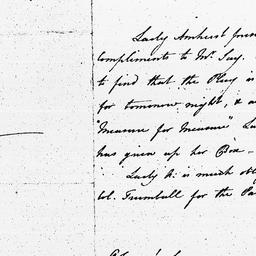 Lady Amherst
compliments to Mr. Say.
to find that the Play is
for tomorrow night, & a
"Measure for Measure" La
has given up her Box -
Lady A: is much obl
Col. Trumbull for the Pa